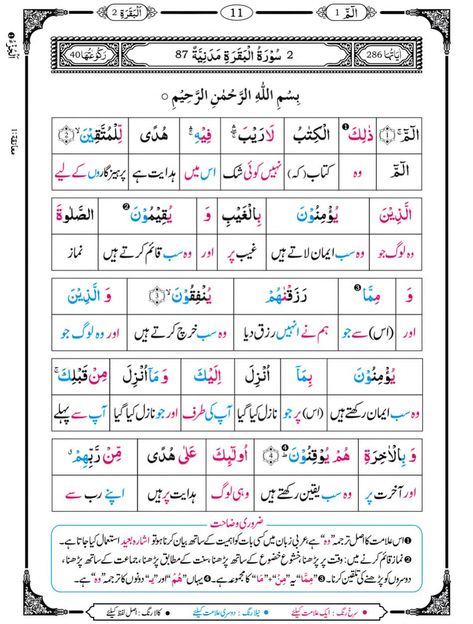 الٓمّٓ 1
11
اَلْبَقَرَةِ 2
اٰيَاتُهَا 286
2 سُوْرَةُ الْبَقَرَةِ مَدَنِيَّةٌ 87
رُكُوْعَاتُهَا 40
بِسْمِ اللّٰهِ الرَّحْمٰنِ الرَّحِيْمِ
الٓمّٓ ﴿1﴾ ذٰلِكَ❶ الْكِتٰبُ لَا رَيْبَ فِيْهِ هُدًى لِّلْمُتَّقِيْنَ ﴿2﴾
الٓمّٓ وہ کتاب (کہ) نہیں کوئی شک اس میں ہدایت ہے پرہیزگاروں کے لیے
الَّذِيْنَ يُؤْمِنُوْنَ بِالْغَيْبِ وَ يُقِيْمُوْنَ❷ الصَّلٰوةَ
وہ لوگ جو وہ سب ایمان لاتے ہیں غیب پر اور وہ سب قائم کرتے ہیں نماز
وَ مِمَّا❸ رَزَقْنٰهُمْ يُنْفِقُوْنَ ﴿3﴾ وَ الَّذِيْنَ
اور (اس) سے جو ہم نے انہیں رزق دیا وہ سب خرچ کرتے ہیں اور وہ لوگ جو
يُؤْمِنُوْنَ بِمَآ اُنْزِلَ اِلَيْكَ وَ مَآ اُنْزِلَ مِنْ قَبْلِكَ
وہ سب ایمان رکھتے ہیں (اس) پر جو نازل کیا گیا آپ کی طرف اور جو نازل کیا گیا آپ سے پہلے
وَ بِالْاٰخِرَةِ هُمْ يُوْقِنُوْنَ❹ ﴿4﴾ اُولٰٓئِكَ عَلٰى هُدًى مِّنْ رَّبِّهِمْ
اور آخرت پر وہ سب یقین رکھتے ہیں وہی لوگ ہدایت پر ہیں اپنے رب سے
ضروری وضاحت
❶ اس علامت کا اصل ترجمہ "وہ" ہے، عربی زبان میں کسی بات کو اہمیت کے ساتھ بیان کرنا ہو تو اشارہ بعید استعمال کیا جاتا ہے۔
❷ نماز قائم کرنے میں: وقت پر پڑھنا، خشوع خضوع کے ساتھ پڑھنا، سنت کے مطابق پڑھنا، جماعت کے ساتھ پڑھنا،
دوسروں کو پڑھنے کی تلقین کرنا۔ ❸ "مِمَّا" یہ "مِنْ، مَا" کا مجموعہ ہے۔ ❹ یہاں "هُمْ" اور "يـ" دونوں کا ترجمہ "وہ" ہے۔
• سرخ رنگ: ایک علامت کیلئے • نیلا رنگ: دوسری علامت کیلئے • کالا رنگ: اصل لفظ کیلئے